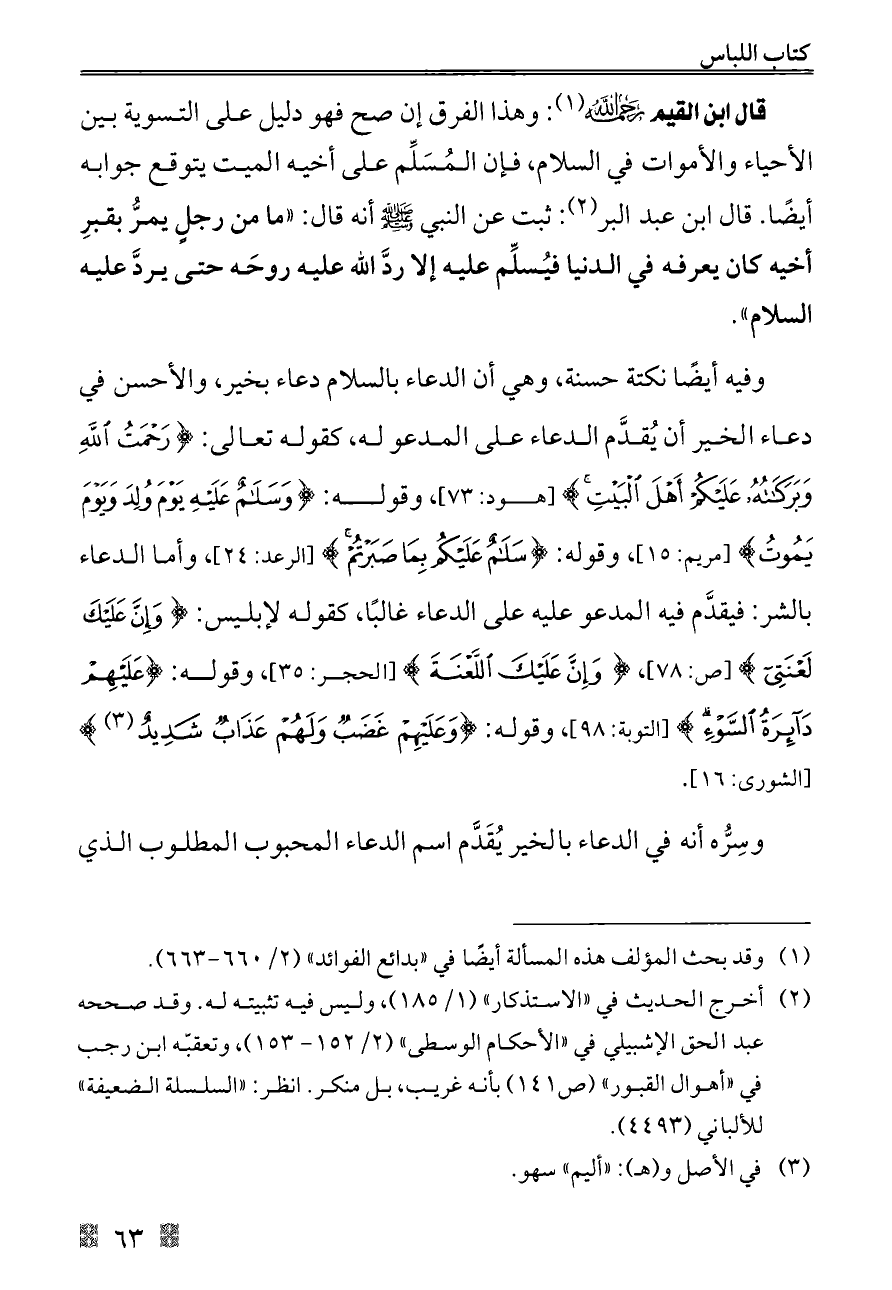 كتاب اللباس
قال ابن القيم رحمه الله(١): وهذا الفرق إن صح فهو دليل على التسوية بين
الأحياء والأموات في السلام، فإن المُسَلِّم على أخيه الميت يتوقع جوابه
أيضًا. قال ابن عبد البر(٢): ثبت عن النبي ﷺ أنه قال: «ما من رجلٍ يمرُّ بقبرِ
أخيه كان يعرفه في الدنيا فيُسلِّم عليه إلا ردَّ الله عليه روحَه حتى يردَّ عليه
السلام».
وفيه أيضًا نكتة حسنة، وهي أن الدعاء بالسلام دعاء بخير، والأحسن في
دعاء الخير أن يُقدَّم الدعاء على المدعو له، كقوله تعالى: ﴿رَحْمَتُ ٱللَّهِ
وَبَرَكَٰتُهُۥ عَلَيْكُمْ أَهْلَ ٱلْبَيْتِۚ﴾ [هود: ٧٣]، وقوله: ﴿وَسَلَٰمٌ عَلَيْهِ يَوْمَ وُلِدَ وَيَوْمَ
يَمُوتُ﴾ [مريم: ١٥]، وقوله: ﴿سَلَٰمٌ عَلَيْكُم بِمَا صَبَرْتُمْۚ﴾ [الرعد: ٢٤]، وأما الدعاء
بالشر: فيقدَّم فيه المدعو عليه على الدعاء غالبًا، كقوله لإبليس: ﴿وَإِنَّ عَلَيْكَ
لَعْنَتِىٓ﴾ [ص: ٧٨]، ﴿وَإِنَّ عَلَيْكَ ٱللَّعْنَةَ﴾ [الحجر: ٣٥]، وقوله: ﴿عَلَيْهِمْ
دَآئِرَةُ ٱلسَّوْءِۗ﴾ [التوبة: ٩٨]، وقوله: ﴿وَعَلَيْهِمْ غَضَبٌ وَلَهُمْ عَذَابٌ شَدِيدٌ(٣)﴾
[الشورى: ١٦].
وسِرُّه أنه في الدعاء بالخير يُقَدَّم اسم الدعاء المحبوب المطلوب الذي
(١) وقد بحث المؤلف هذه المسألة أيضًا في «بدائع الفوائد» (٢/ ٦٦٠-٦٦٣).
(٢) أخرج الحديث في «الاستذكار» (١/ ١٨٥)، وليس فيه تثبيته له. وقد صححه
عبد الحق الإشبيلي في «الأحكام الوسطى» (٢/ ١٥٢- ١٥٣)، وتعقبّه ابن رجب
في «أهوال القبور» (ص١٤١) بأنه غريب، بل منكر. انظر: «السلسلة الضعيفة»
للألباني (٤٤٩٣).
(٣) في الأصل و(هـ): «أليم» سهو.
٦٣